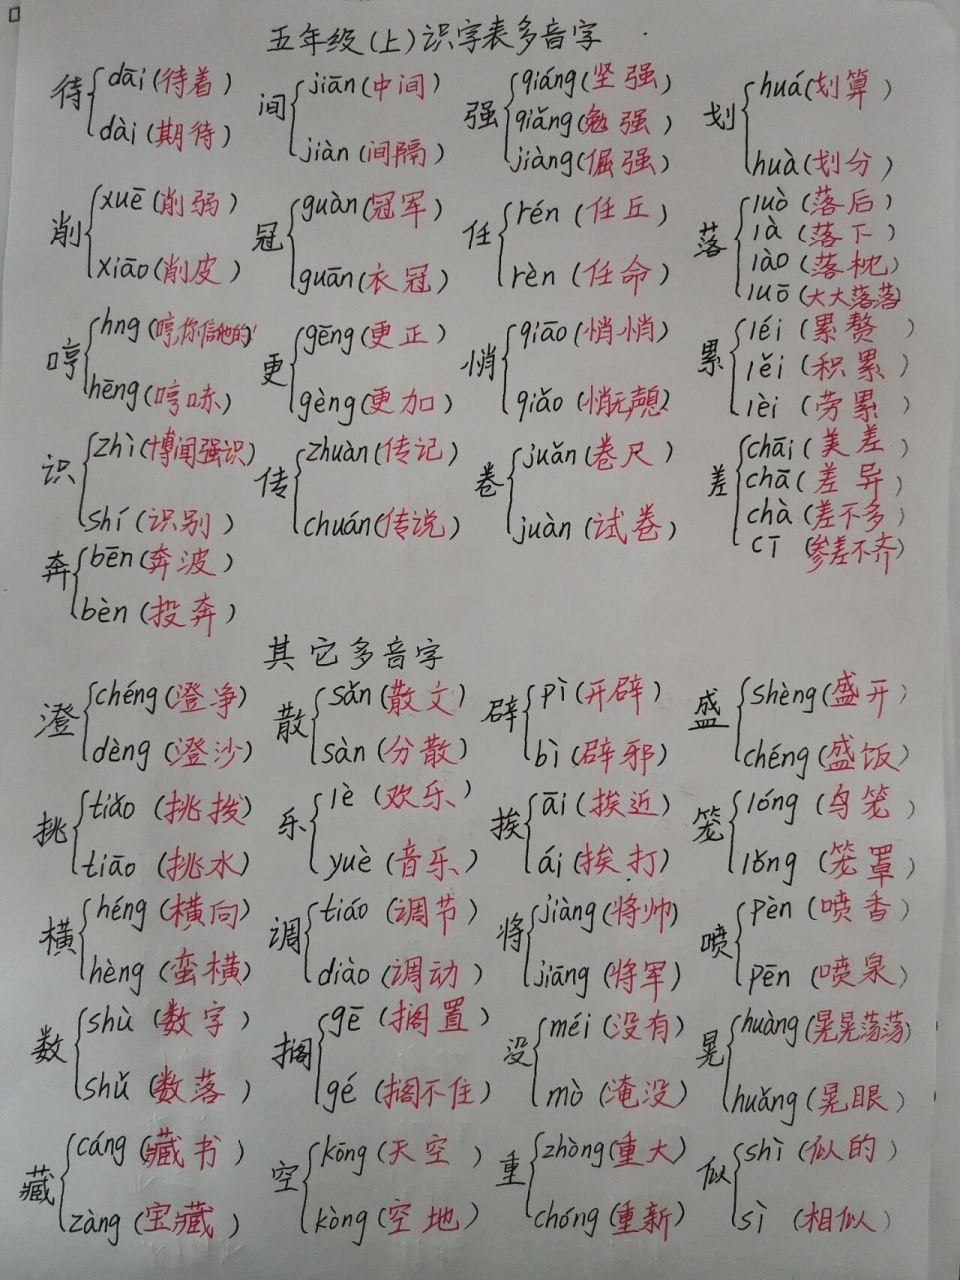 五年级(上)识字表多音字
待 dāi(待着) dài(期待)
间 jiān(中间) jiàn(间隔)
强 qiáng(坚强) qiǎng(勉强) jiàng(倔强)
划 huá(划算) huà(划分)
削 xuē(削弱) xiāo(削皮)
冠 guàn(冠军) guān(衣冠)
任 rén(任丘) rèn(任命)
落 luò(落后) là(落下) lào(落枕) luō(大大落落)
哼 hng(哼,你信他的!) hēng(哼味)
更 gēng(更正) gèng(更加)
悄 qiāo(悄悄) qiǎo(悄无声息)
累 léi(累赘) lěi(积累) lèi(劳累)
识 zhì(博闻强识) shí(识别)
传 zhuàn(传记) chuán(传说)
卷 juǎn(卷尺) juàn(试卷)
差 chāi(美差) chā(差异) chà(差不多) cī(参差不齐)
奔 bēn(奔波) bèn(投奔)
其它多音字
澄 chéng(澄净) dèng(澄沙)
散 sǎn(散文) sàn(分散)
辟 pì(开辟) bì(辟邪)
盛 shèng(盛开) chéng(盛饭)
挑 tiǎo(挑拨) tiāo(挑水)
乐 lè(欢乐) yuè(音乐)
挨 āi(挨近) ái(挨打)
笼 lóng(鸟笼) lǒng(笼罩)
横 héng(横向) hèng(蛮横)
调 tiáo(调节) diào(调动)
将 jiàng(将帅) jiāng(将军)
喷 pèn(喷香) pēn(喷泉)
数 shù(数字) shǔ(数落)
搁 gē(搁置) gé(搁不住)
没 méi(没有) mò(淹没)
晃 huàng(晃晃荡荡) huǎng(晃眼)
藏 cáng(藏书) zàng(宝藏)
空 kōng(天空) kòng(空地)
重 zhòng(重大) chóng(重新)
似 shì(似的) sì(相似)